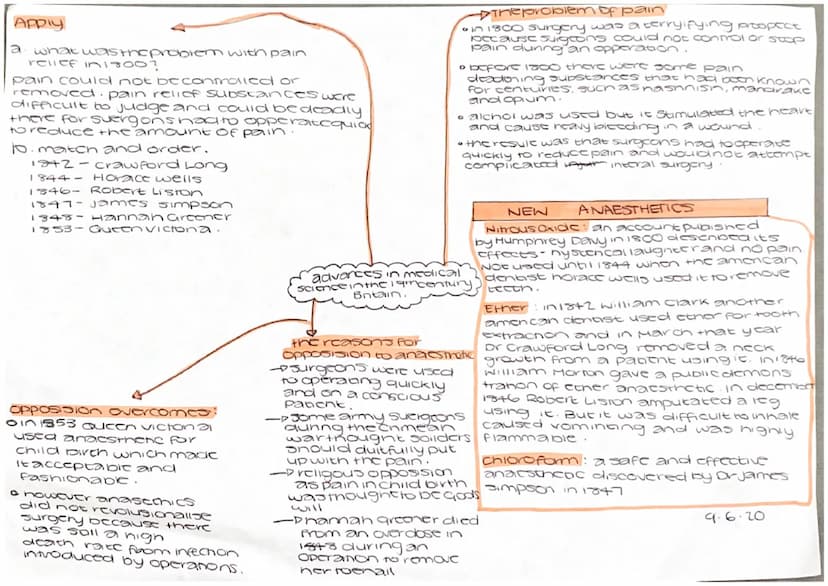 Apply
a. what was the problem with pain
relief in 1800?
pain could not be controlled or
removed. pain relief substances were
difficult to judge and could be deadly
there for suergons had to opperate quick
to reduce the amount of pain.
b. match and order.
1842 - Crawford Long
1844 - Horace wells
1846 - Robert Liston
1847 - James Simpson
1848 - Hannah Greener
1853 - Queen victoria.
The problem of pain
• in 1800 surgery was a terryifying prospect
because surgeons could not control or stop
pain during an opperation.
• before 1800 there were some pain
deadening substances that had been known
for centuries, such as hashhish, mandrake
and opium.
• alchol was used but it stimulated the heart
and cause heavy bleeding in a wound.
• the result was that surgeons had to operate
quickly to reduce pain and would not attempt
complicated interal surgery.
NEW ANAESTHETICS
Nitrous Oxide: an account published
by Humphrey Davy in 1800 described its
effects - hysterical laughter and no pain
Not used until 1844 when the american
dentist horace wells used it to remove
teeth.
Ether: in 1842 William Clark another
american dentist used ether for tooth
extraction and in March that year
Dr Crawford Long removed a neck
growth from a patient using it. in 1846
William Morton gave a public demons
tration of ether anaesthetic. in december
1846 Robert Liston amputated a leg
using it. But it was difficult to inhale
caused vominting and was highly
flammable.
Chloroform: a safe and effective
anaesthetic discovered by Dr James
Simpson in 1847
9.6.20
advances in medical
science in the 19th century
Britain.
the reasons for
opposision to anaesthetic
→ surgeons were used
to operating quickly
and on a conscious
patient.
→ Some army suergeons
during the crimean
war thought soliders
should duitfully put
up with the pain.
→ religous oppossion
as pain in child birth
was thought to be Gods
will
→ hannah Greener died
from an overdose in
1848 during an
operation to remove
her toenail
oppossion overcomes:
• in 1853 Queen victoria
used anaesthetic for
child birth which made
it acceptable and
fashionable.
• however anaesethics
did not revolusionalise
surgery because there
was still a high
death rate from infection
introduced by operations.